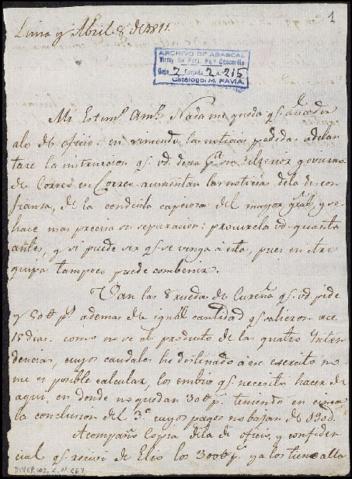 1
Lima y Abril 8 de 1811.
ARCHIVO DE ABASCAL
Caja 2 Carpeta 2
Catálogo: M. PAVIA
Mi Estim.º Am.º Nada me queda q.e añadir
alo de oficio: en viniendo las noticias pedidas adelan
tare la instruccion q.e vd desea
de Correo en Correo aumentan las noticias de la descon
fianza, de la conducta capciosa del mayor gral y se
hace mas precisa su separacion: procurela vd quanto
antes, y si puede ser q.e se venga a esta, pues en Are
quipa tampoco puede combenir.
Van las 8 ruedas de Cureña q.e vd pide
y 50 p.s ademas de igual cantidad q.e salieron ace
15 dias. como no se el producto de las quatro Inten
dencias, cuyos caudales he destinado a ese exercito no
me es posible calcular, los embios q.e necesito hacer de
aqui, en donde no quedan 30 p.s teniendo en
la conclusion del 3.º cuyos pagos no bajan de
Acompaño copia de la de oficio, y confiden
cial q.e recivi de Elio los 300 p.s ya los tiene alla